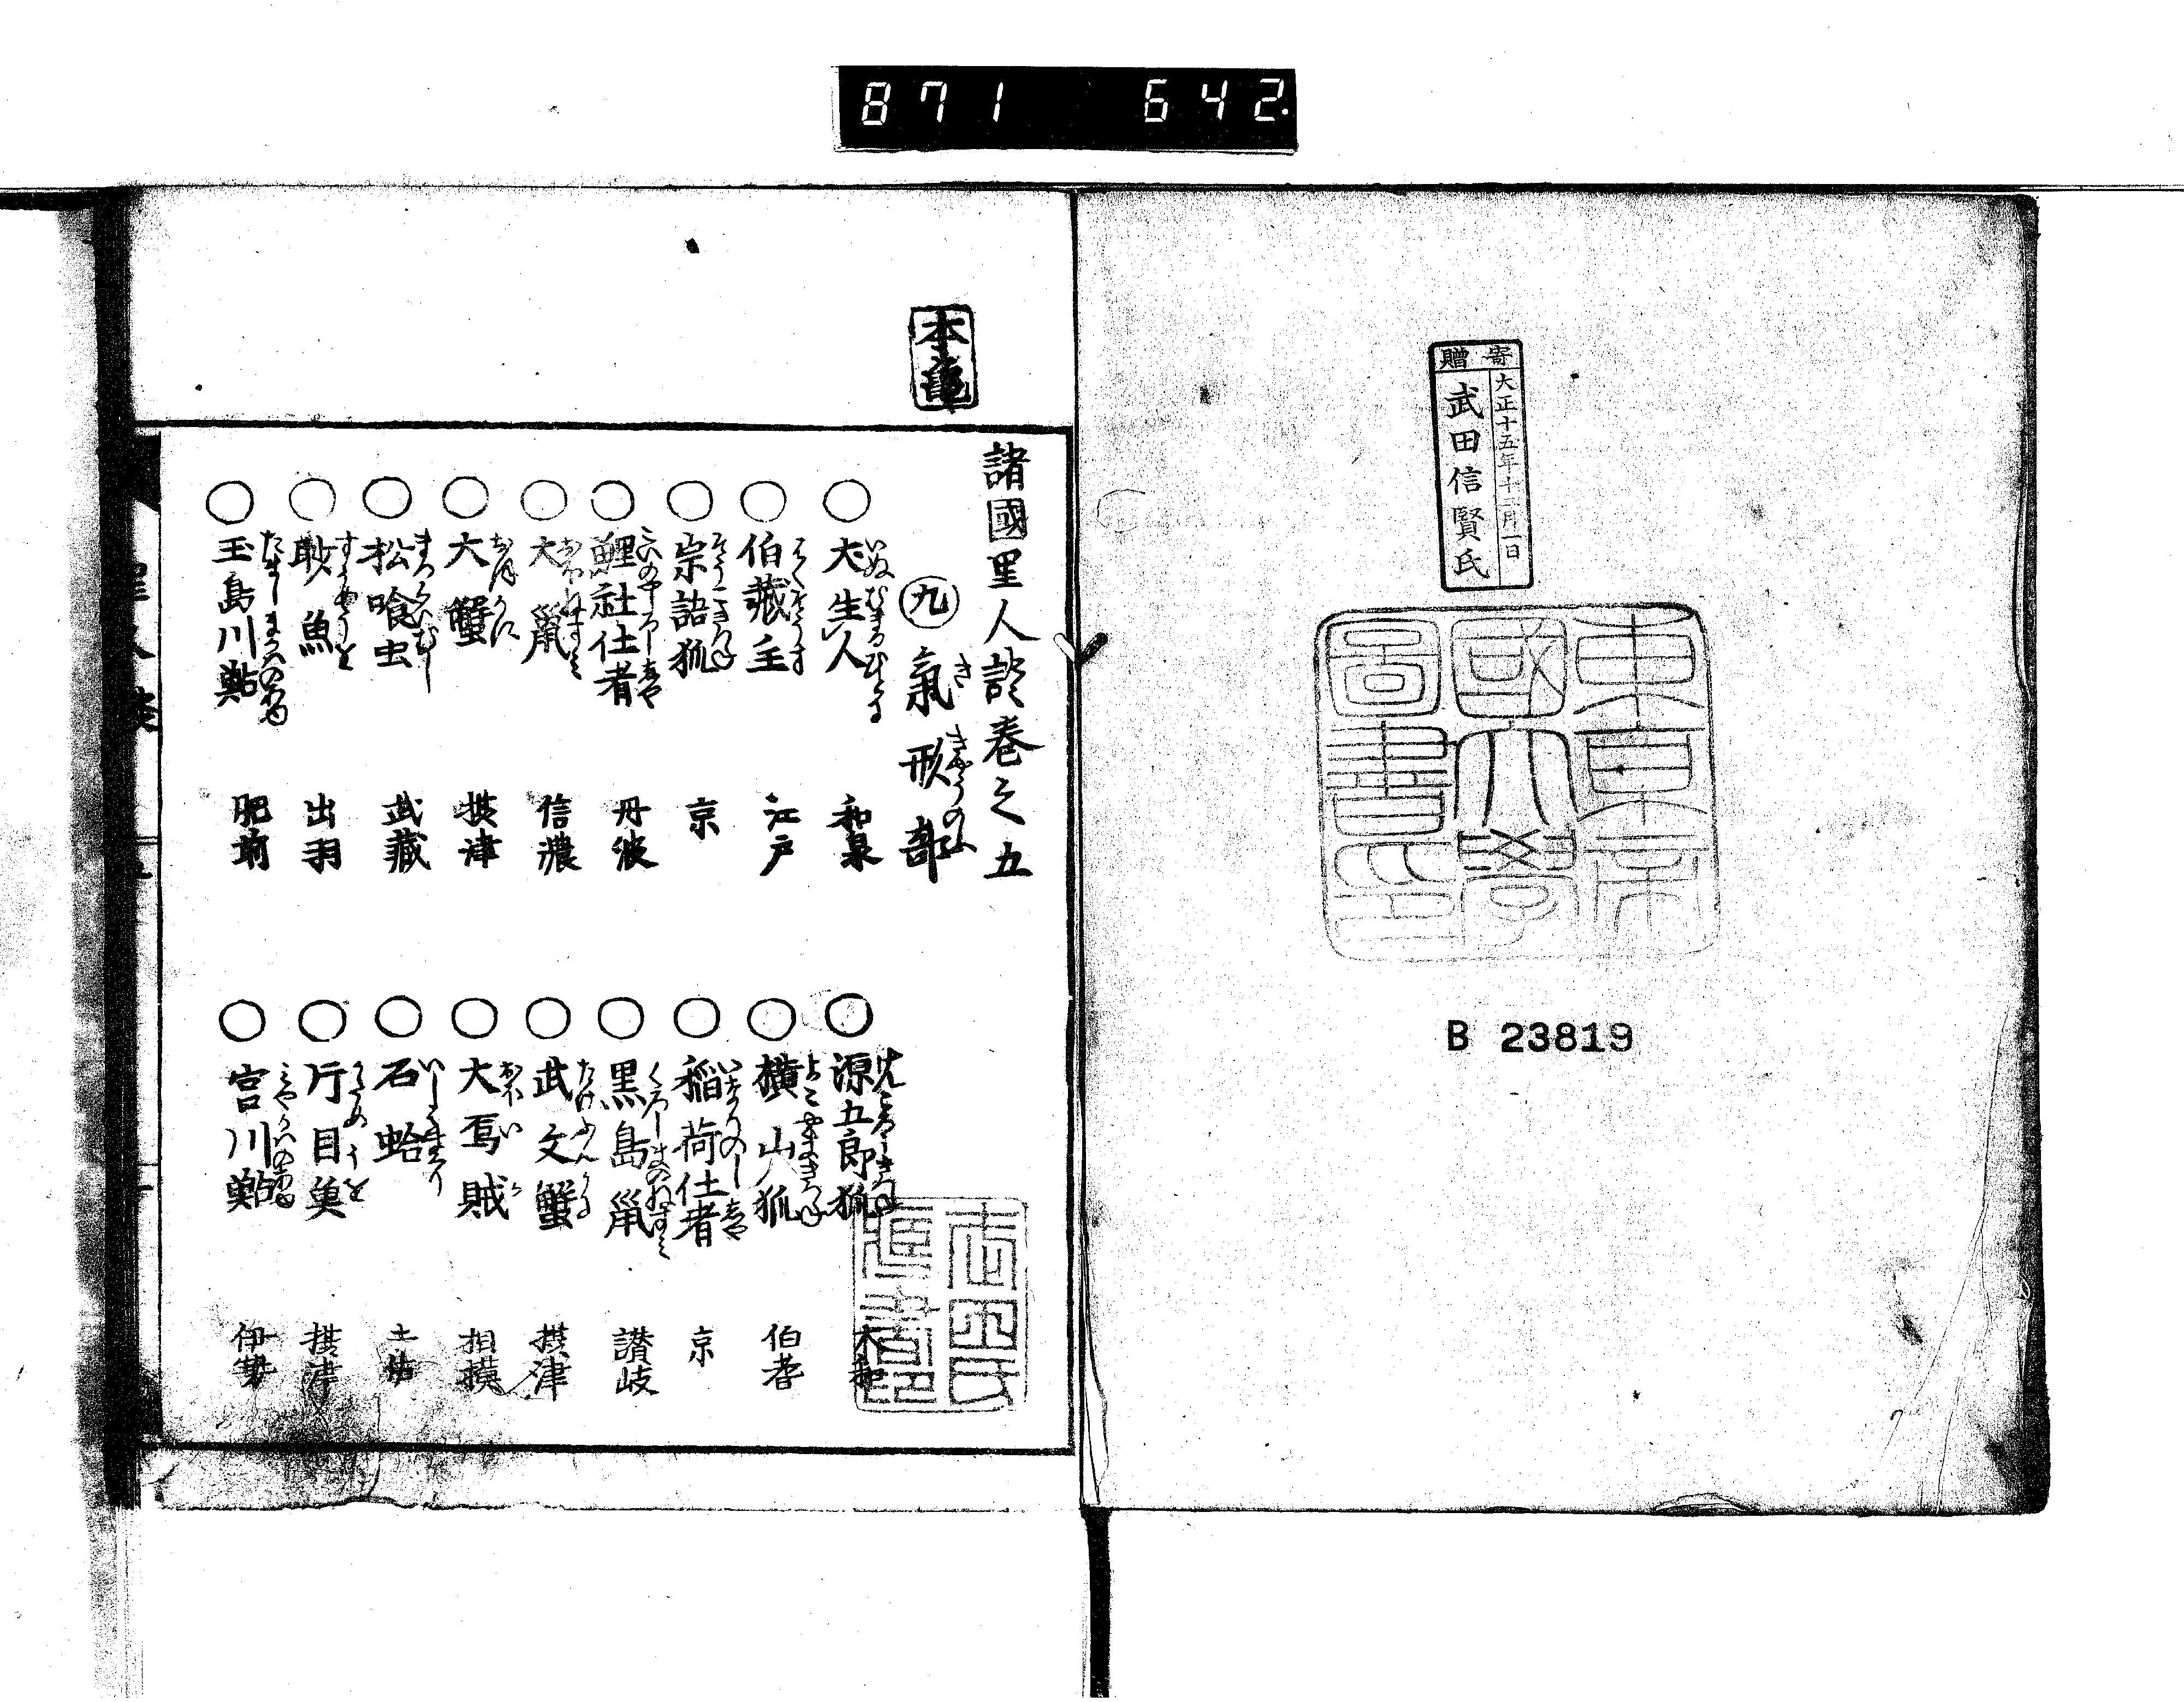 871 642.
寄贈
大正十五年十二月一日
武田信賢氏
東京帝
國大學
圖書印
B 23819
本亀
諸國里人談巻之五
㊈氣形部
○犬生人 和泉
○源五郎狐 大和
○伯藏主 江戸
○横山狐 伯耆
○宗語狐 京
○稲荷仕者 京
○鯉社仕者 丹波
○黒島鼠 讃岐
○大鼠 信濃
○武文蟹 摂津
○大蟹 摂津
○大烏賊 相摸
○松喰虫 武藏
○石蛤 土佐
○魚 出羽
○片目魚 摂津
○玉島川鮎 肥前
○宮川鮎 伊勢